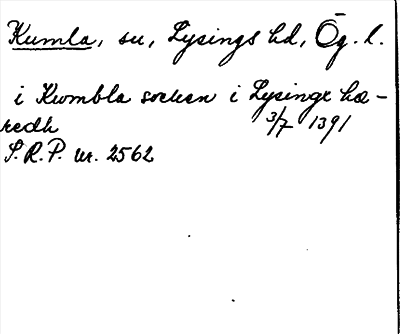 Kumla, sn, Lysings hd, Ög. l.
i Kwmbla socken i Lysingx hæ-
redh 3/7 1391
S.R.P. nr. 2562